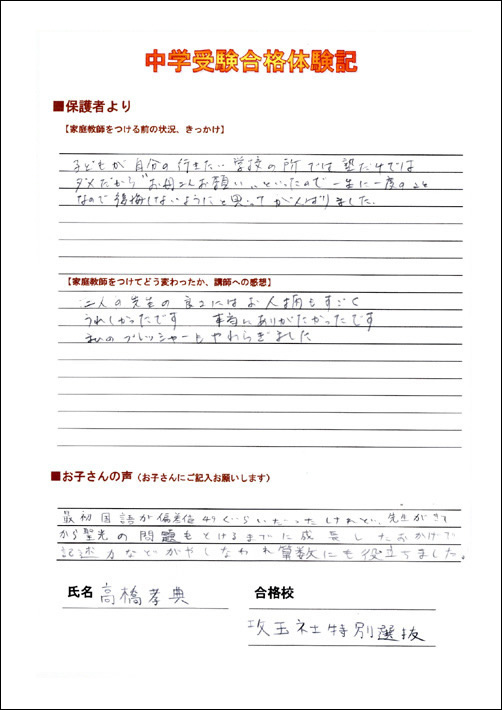 中学受験合格体験記
■保護者より
【家庭教師をつける前の状況、きっかけ】
子どもが自分の行きたい学校の所では塾だけでは
ダメだから"お母さんお願い"といったので一生に一度のこと
なので後悔しないようにと思ってがんばりました。
【家庭教師をつけてどう変わったか、講師への感想】
二人の先生の良さにはお人柄もすごく
うれしかったです 本当にありがたかったです
私のプレッシャーもやわらぎました
■お子さんの声（お子さんにご記入お願いします）
最初国語が偏差値47ぐらいだったけれど、先生がきて
から聖光の問題もとけるまでに成長したおかげで
記述力などがやしなわれ算数にも役立ちました。
氏名 高橋孝典 合格校
攻玉社特別選抜